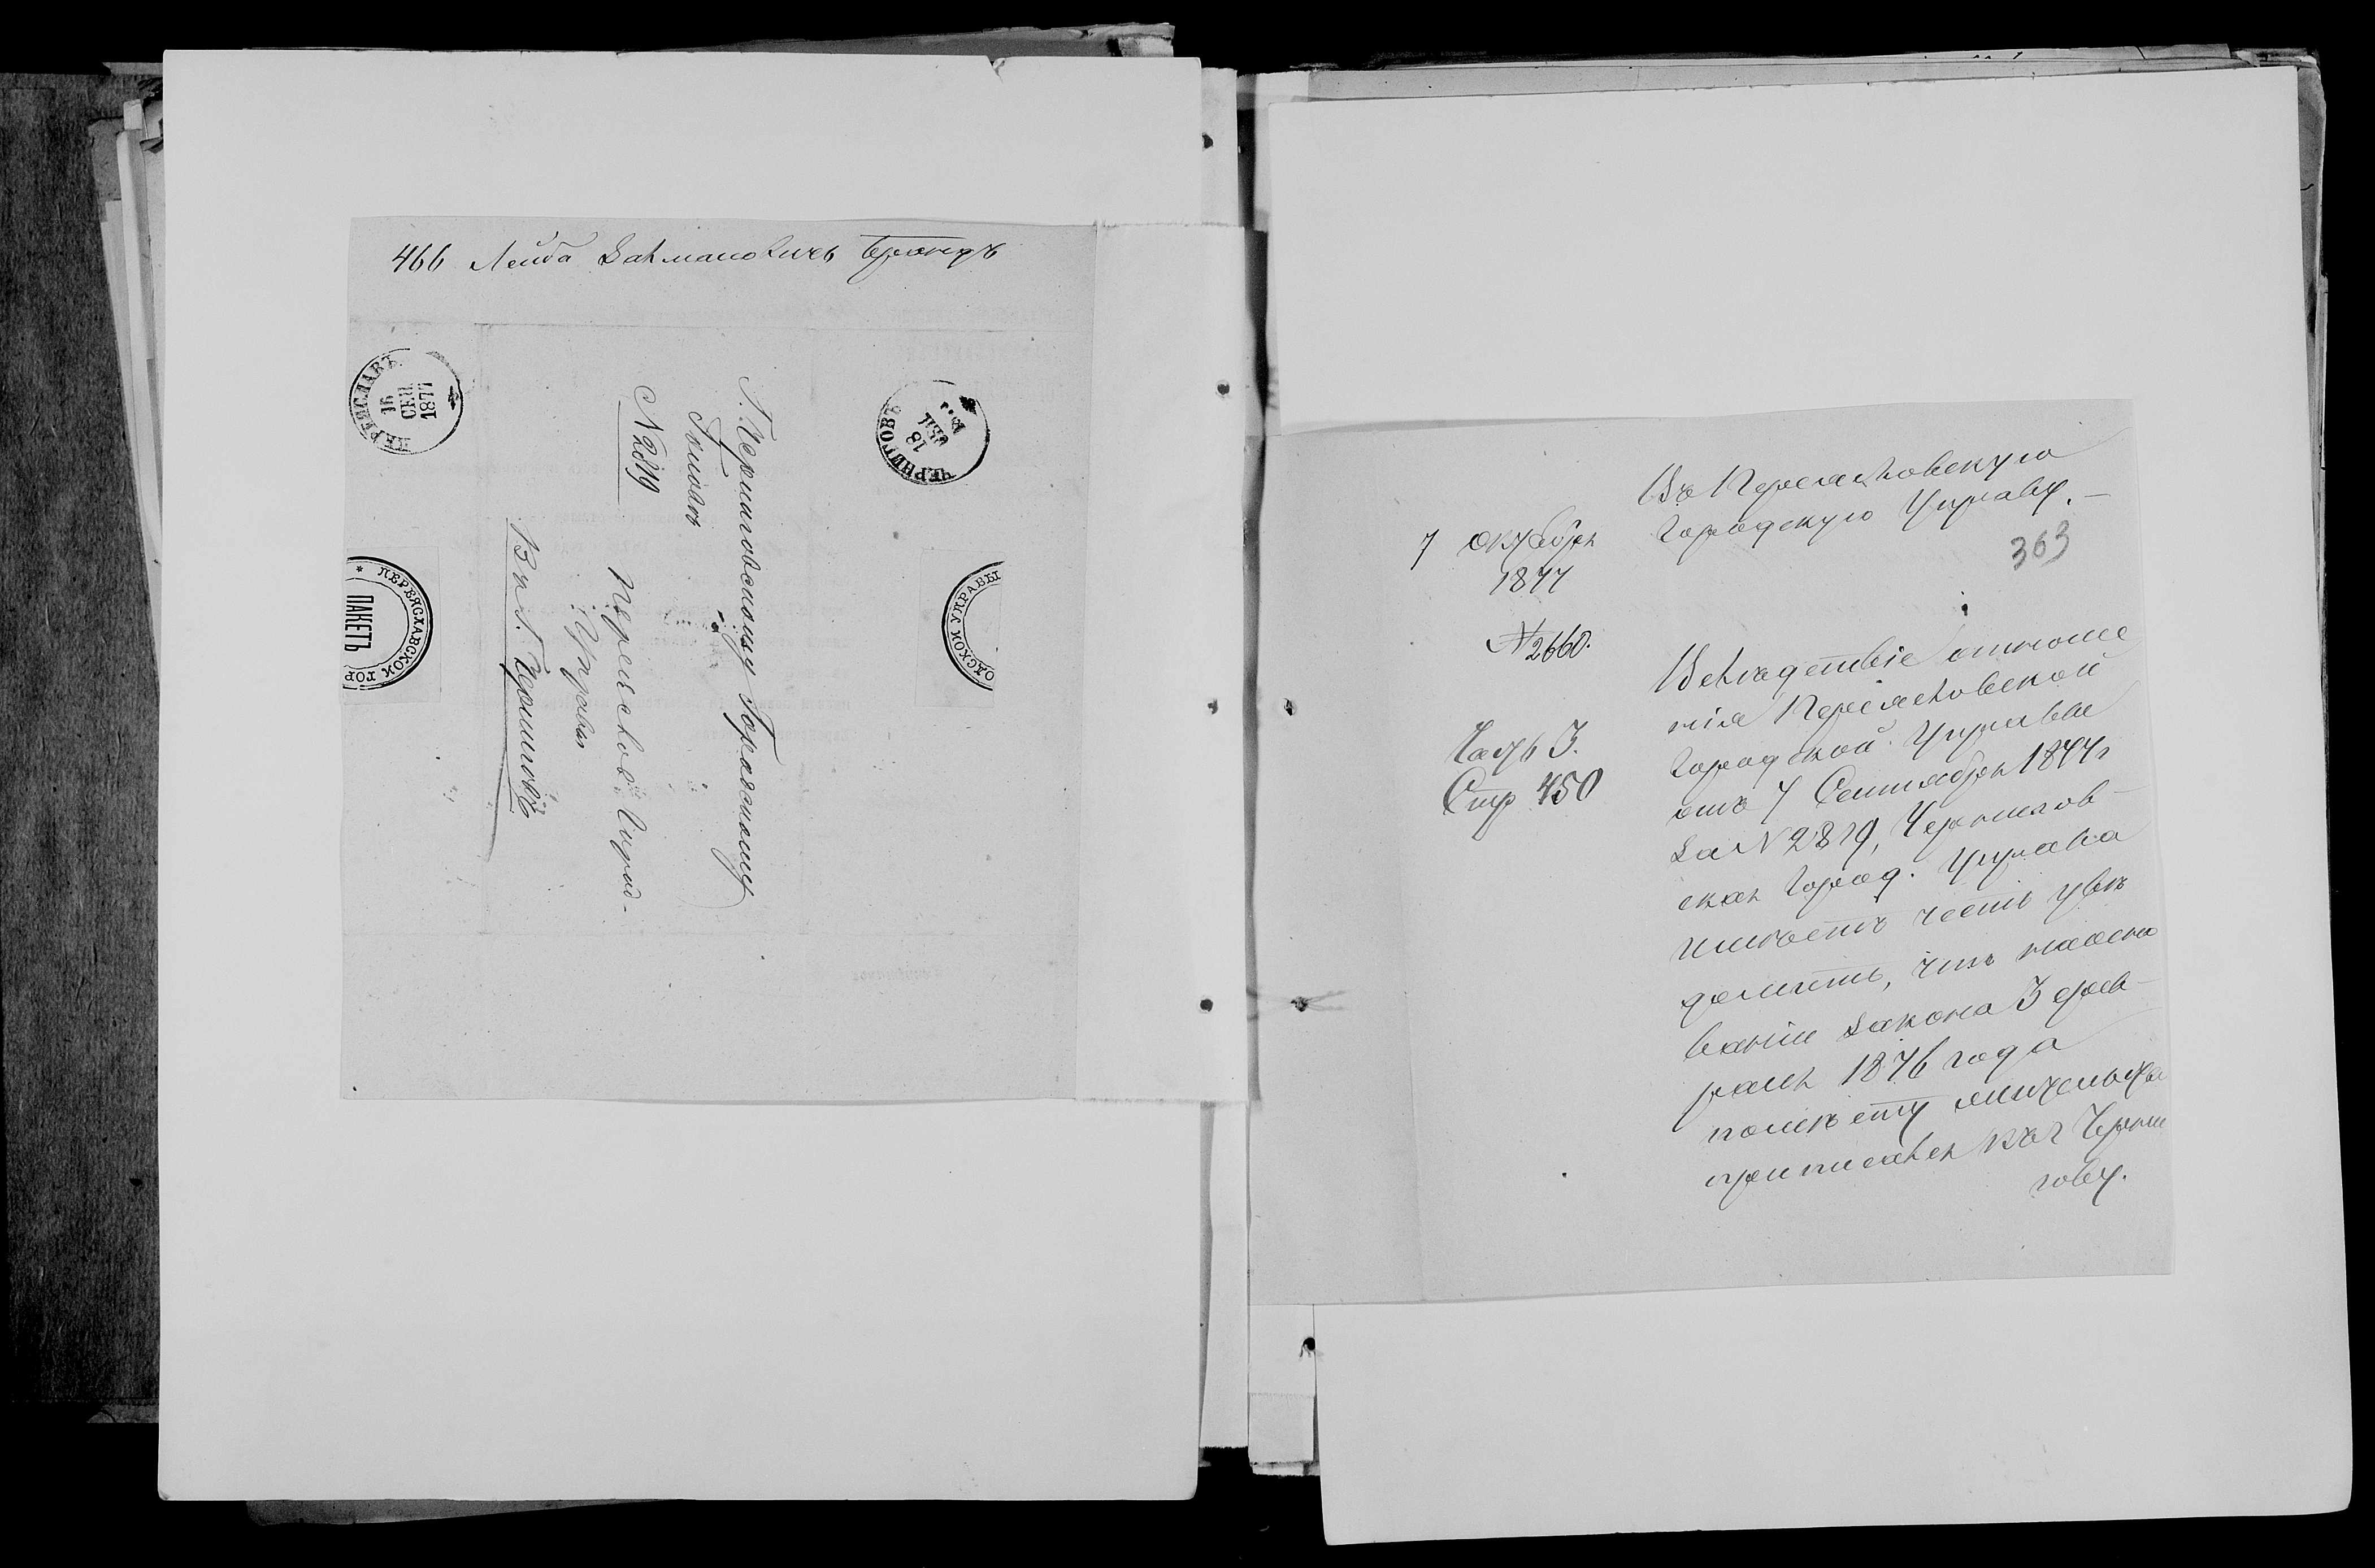 466 Лейба Залмановичъ Брандъ
ПЕРЕЯСЛАВЪ
16
СЕН.
1877
ЧЕРНИГОВЪ
18
СЕН
Г. Черниговскому Городскому
Головѣ
N 2819
Переяслов. Город.
Управы
Въ г. Черниговъ
* ПЕРЕЯСЛАВСКОЙ ГОР
ПАКЕТЪ
ОДСКОЙ УПРАВЫ
Въ Переясловскую
Городскую Управу.
363
7 октября
1877
N 2660.
Часть 3.
Стр 450
Вслѣдствіе отноше
нія Переясловской
Городской Управы
отъ 7 Сентября 1877 г
за N 2819, Черниговъ
ская Город. Управа
имѣетъ честь увѣ
домить, что на осно
ваніи закона 3 фев
раля 1876 года
по мѣсту жительства
приписался къ г Черни
гову.